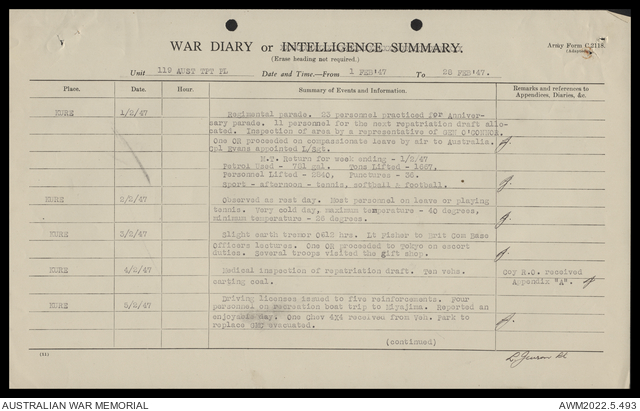 WAR DIARY or INTELLIGENCE SUMMARY.
(Erase heading not required.)
Army Form C.2118.
(Adapted)
Unit 119 AUST TPT PL Date and Time.—From 1 FEB'47 To 28 FEB'47.
Place. Date. Hour. Summary of Events and Information. Remarks and references to
Appendices, Diaries, &c.
KURE 1/2/47 Regimental parade. 23 personnel practised for Anniver-
sary parade. 11 personnel for the next repatriation draft allo-
cated. Inspection of area by a representative of GEN O'CONNOR.
One OR proceeded on compassionate leave by air to Australia.
Cpl Evans appointed L/Sgt.
M.T. Return for week ending - 1/2/47
Petrol Used - 781 gal. Tons Lifted - 1667,
Personnel Lifted - 2840, Punctures - 36.
Sport - afternoon - tennis, softball & football.
KURE 2/2/47 Observed as rest day. Most personnel on leave or playing
tennis. Very cold day, maximum temperature - 40 degrees,
minimum temperature - 26 degrees.
KURE 3/2/47 Slight earth tremor 0612 hrs. Lt Fisher to Brit Com Base
Officers lectures. One OR proceeded to Tokyo on escort
duties. Several troops visited the gift shop.
KURE 4/2/47 Medical inspection of repatriation draft. Ten vehs. Coy R.O. received
carting coal. Appendix "A".
KURE 5/2/47 Driving licenses issued to five reinforcements. Four
personnel on recreation boat trip to Miyajima. Reported an
enjoyable day. One Chev 4X4 received from Veh. Park to
replace GMC evacuated.
(continued)
(11)
AUSTRALIAN WAR MEMORIAL
AWM2022.5.493